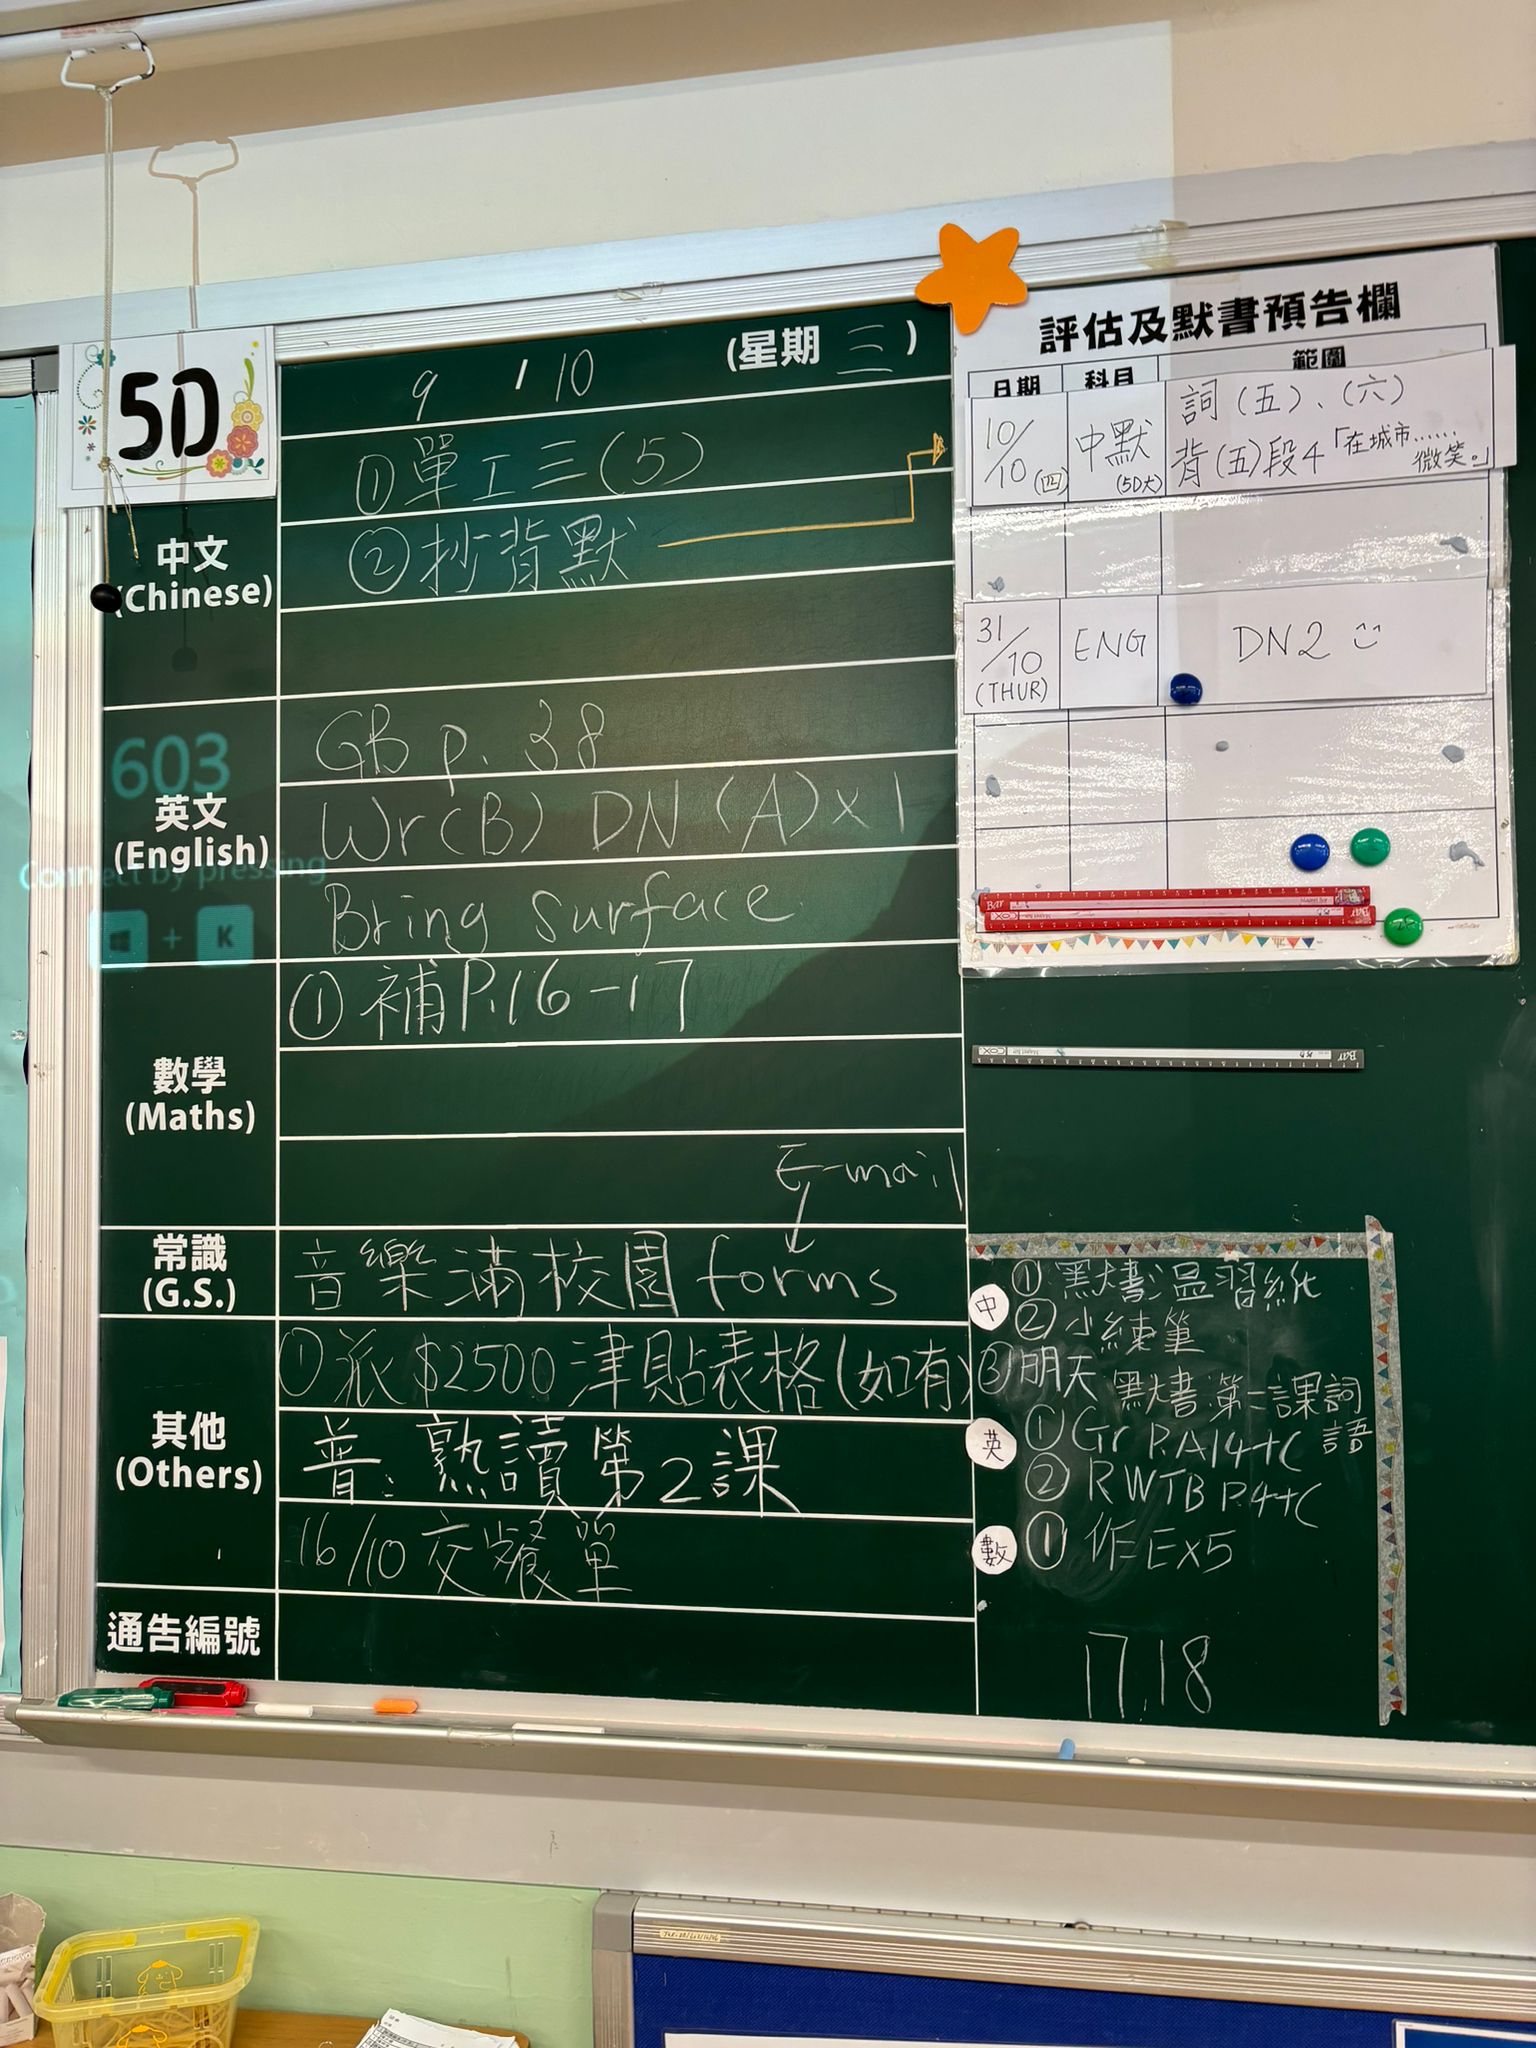 5D
9 / 10 (星期 三)
中文
(Chinese)
①單工三(5)
②抄背默
英文
(English)
GB p. 38
Wr(B) DN (A)x1
Bring surface
603
Connect by pressing
+ K
數學
(Maths)
①補P.16-17
E-mail
常識
(G.S.)
音樂滿校園 forms
其他
(Others)
①派$2500津貼表格(如有)
普:熟讀第2課
16/10 交餐單
通告編號
評估及默書預告欄
日期 科目 範圍
10/10(四) 中默(5D大) 詞(五)、(六)
背(五)段4「在城市……微笑。」
31/10 (THUR) ENG DN2
中 ①默書溫習紙
②小練筆
③明天默書:第二課詞語
英 ①Gr P.A14+C
②RWTB P.4+C
數 ①作EX5
17.18